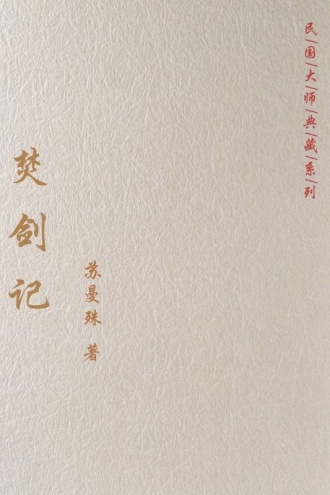 民|国|大|师|典|藏|系|列
焚剑记
苏曼殊 著